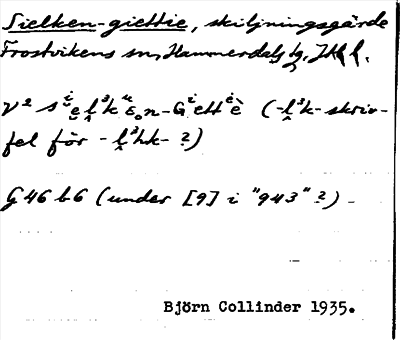 Sielken-giettie, skiljningsgärde
Frostvikens sn, Hammerdals tg, Jtl l.
V² s e l³k n-G iettè (-l³k- skriv-
fel för -l³hk- ?)
G 46 b 6 (under [9] i "943" ?) -
Björn Collinder 1935.